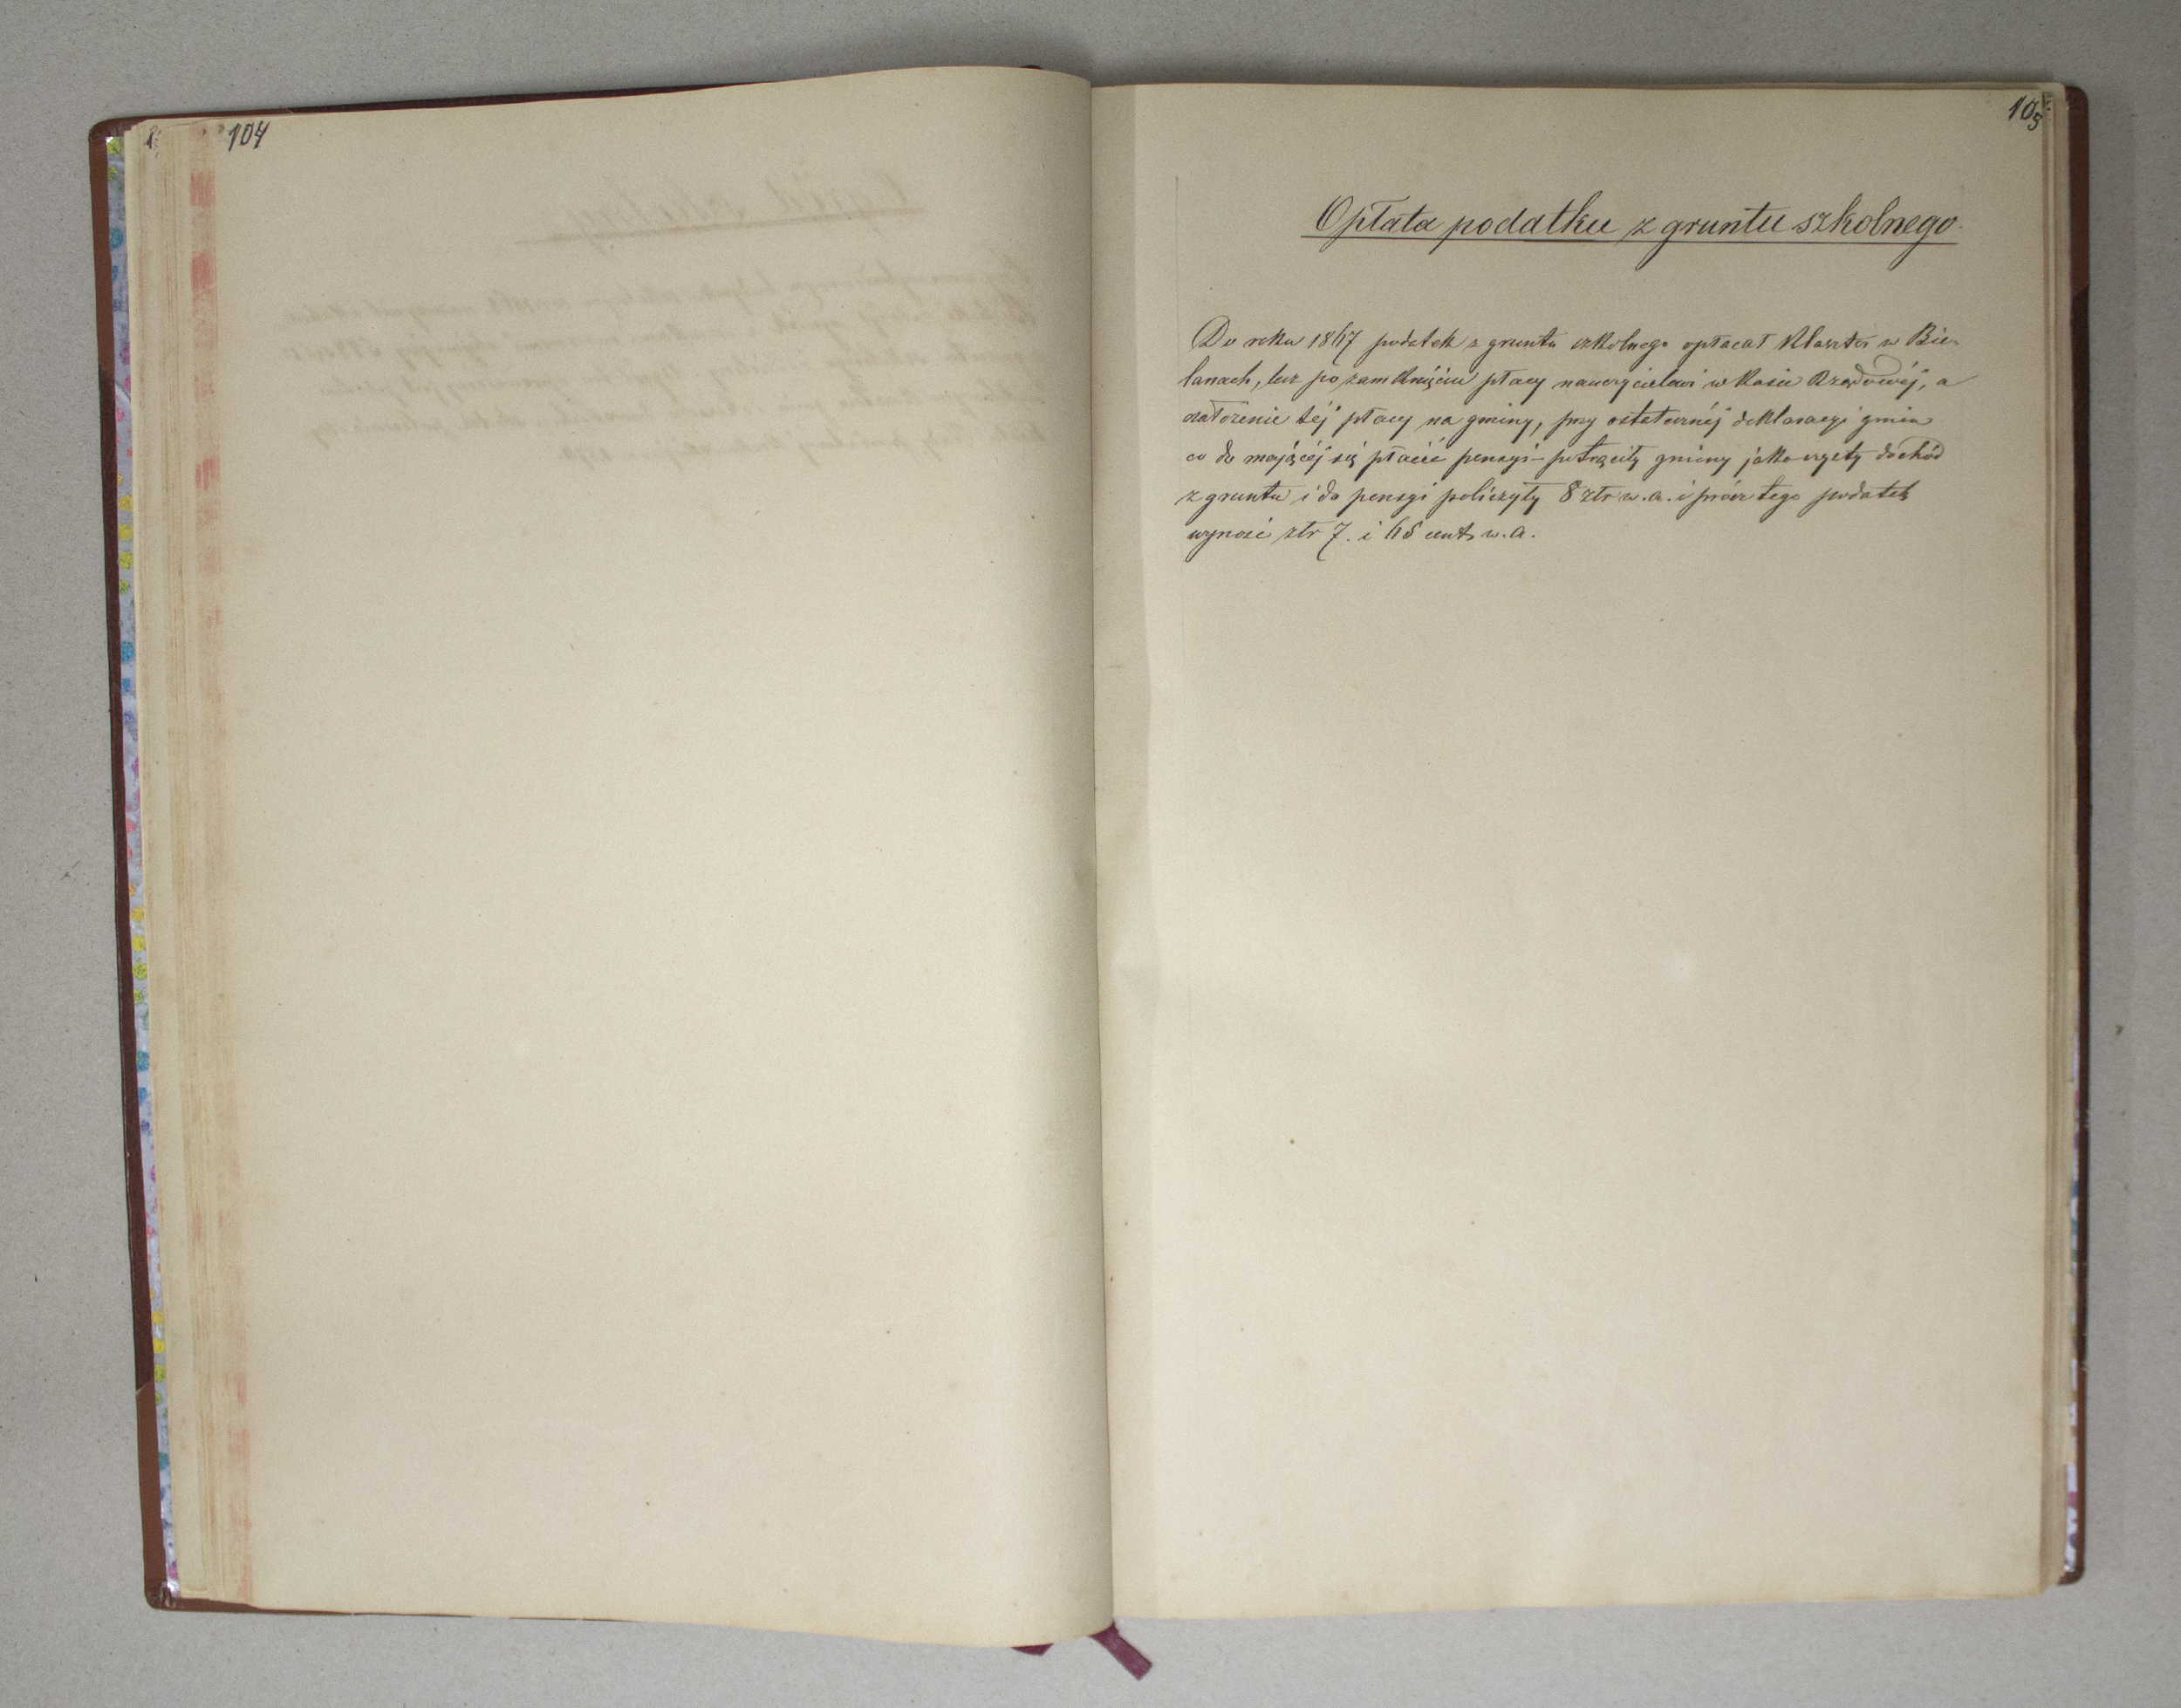 104
105
Opłata podatku z gruntu szkolnego.
Do roku 1867 podatek z gruntu szkolnego opłacał Klasztor w Bie-
lanach, lecz po zamknięciu płacy nauczycielowi w Kasie Rządowéj, a
nałożenie téj płacy na gminy, przy ostatecznéj deklaracyi gmin
co do mającéj się płacić pensyi - potrąciły gminy jako czysty dochód
z gruntu i do pensyi policzyły 8 złr w. a. i prócz tego podatek
wynosi złr 7. i 65 cent. w. a.